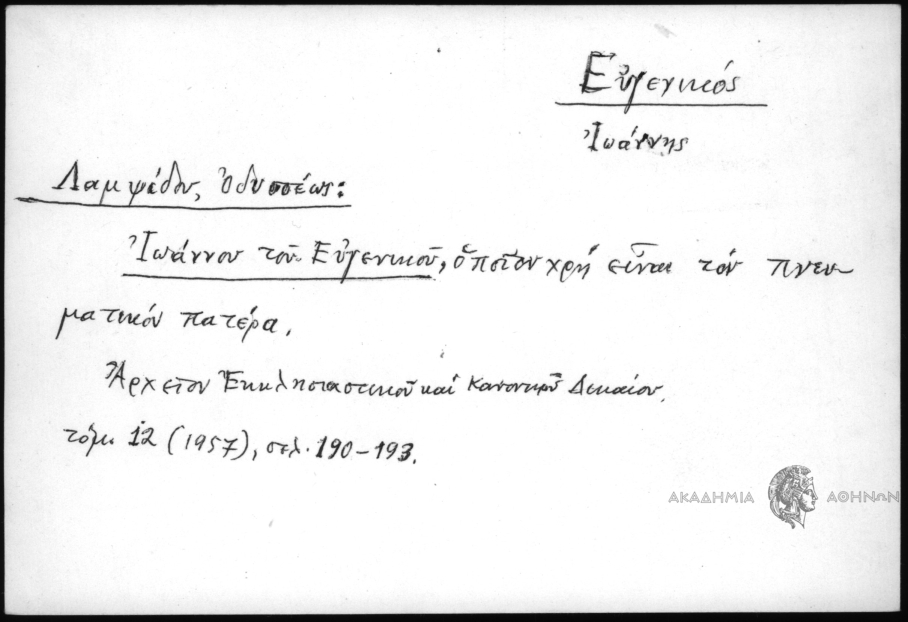 Εὐγενικός
Ἰωάννης
Λαμψίδου, Ὀδυσσέως:
Ἰωάννου τοῦ Εὐγενικοῦ, ὁποῖον χρὴ εἶναι τὸν πνευ-
ματικόν πατέρα.
Ἀρχεῖον Ἐκκλησιαστικοῦ καὶ Κανονικοῦ Δικαίου.
τόμ. 12 (1957), σελ. 190-193.
ΑΚΑΔΗΜΙΑ ΑΘΗΝΩΝ